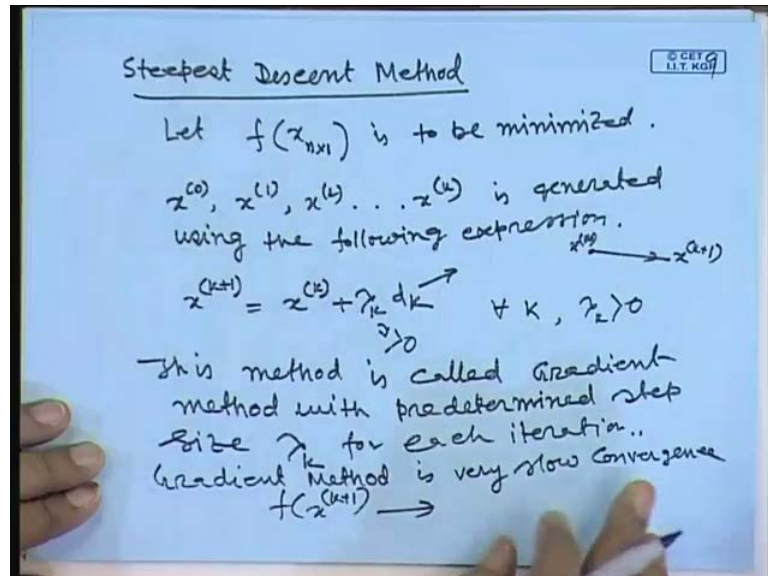 Steepest Descent Method
© CET
I.I.T. KGP
9
Let f(x_{n×1}) is to be minimized.
x^{(0)}, x^{(1)}, x^{(2)} . . . x^{(k)} is generated
using the following expression.
x^{(k)} → x^{(k+1)}
x^{(k+1)} = x^{(k)} + λ_k d_k ∀ k, λ_k > 0
λ > 0
This method is called Gradient
method with predetermined step
size λ_k for each iteration..
Gradient Method is very slow convergence
f(x^{(k+1)}) →